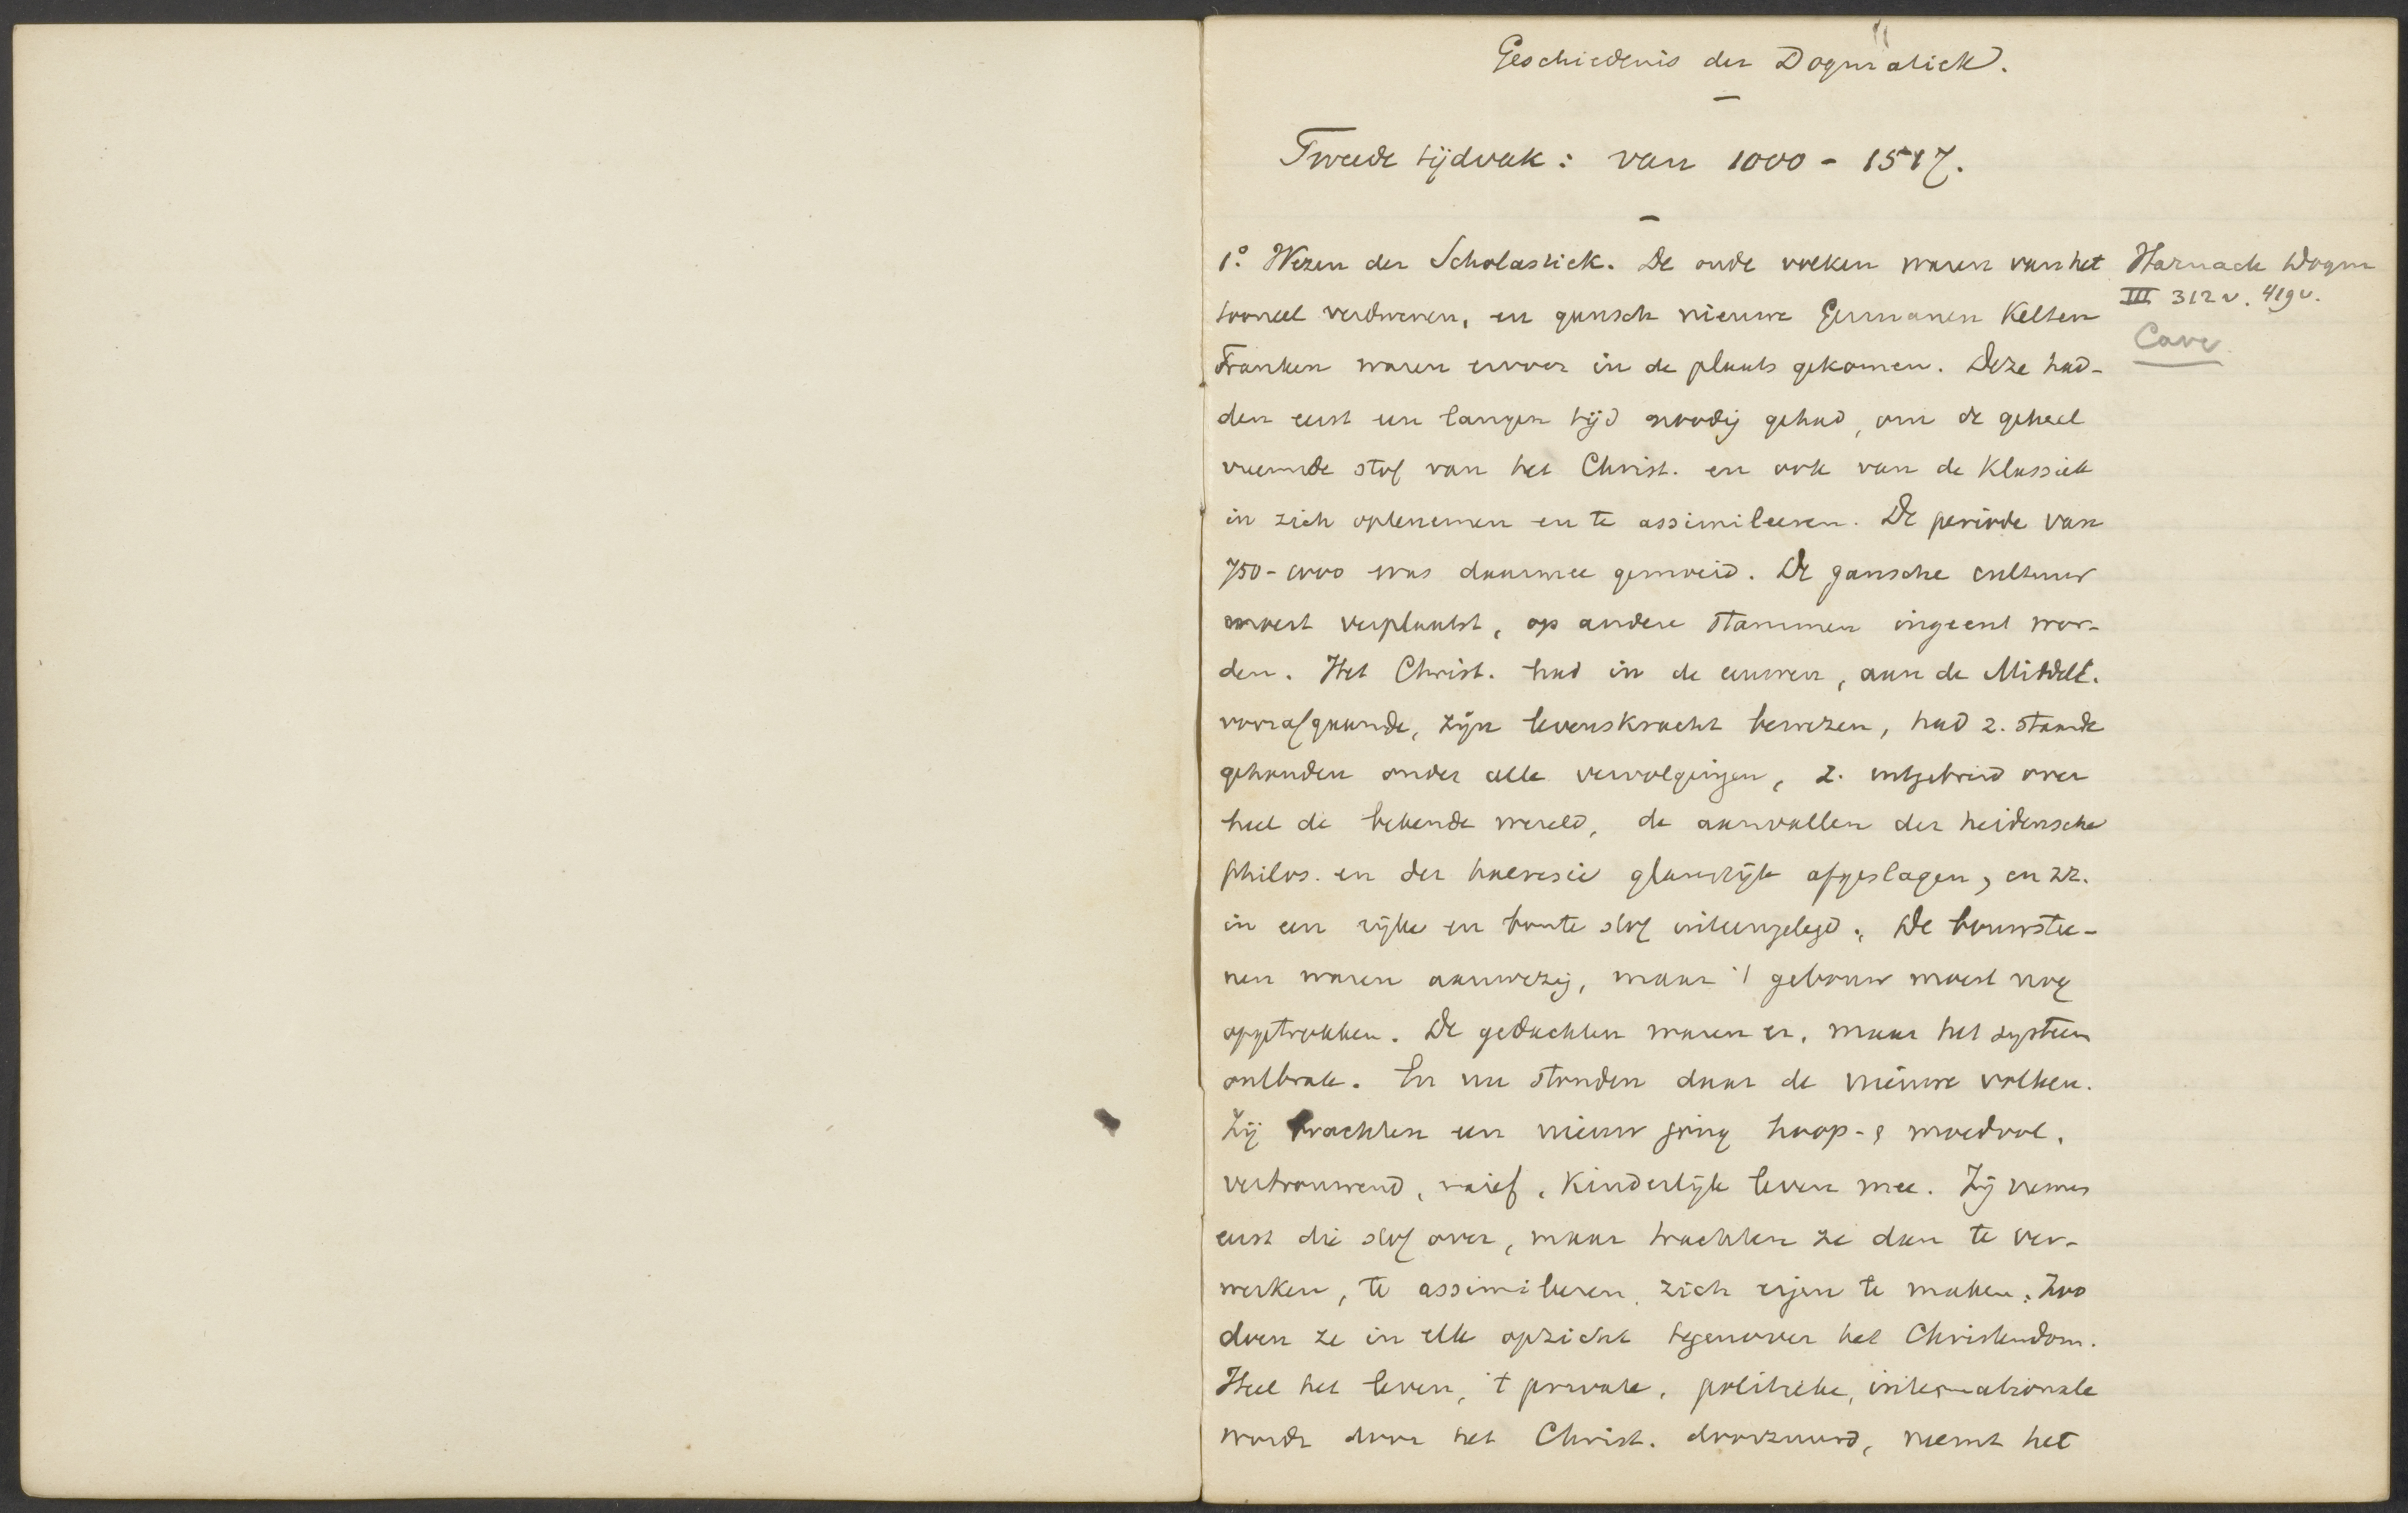 Geschiedenis der Dogmatiek.
Tweede tijdvak: van 1000 - 1517.
1° Wezen der Scholastiek. De oude volken waren van het
tooneel verdwenen, en gansch nieuwe Germanen Kelten
Franken waren ervoor in de plaats gekomen. Deze had-
den eerst een langen tijd noodig gehad, om de geheel
vreemde stof van het Christ. en ook van de Klassiek
in zich optenemen en te assimileeren. De periode van
750-1000 was daarmee gemoeid. De gansche cultuur
moest verplaatst, op andere stammen ingeent wor-
den. Het Christ. had in de eeuwen, aan de Middele.
voorafgaande, zijn levenskracht bewezen, had z. staande
gehouden onder alle vervolgingen, z. uitgebreid over
heel de bekende wereld, de aanvallen der heidensche
philos. en der haeresie glansrijk afgeslagen, en zz.
in een rijke en bonte stof uiteengelegd. De bouwstee-
nen waren aanwezig, maar 't gebouw moest nog
opgetrokken. De gedachten waren er, maar het systeem
ontbrak. En nu stonden daar de nieuwe volken.
Zij brachten een nieuw jong hoop- & moedvol,
vertrouwend, naief, kinderlijk leven mee. Zij nemen
eerst die stof over, maar trachten ze dan te ver-
werken, te assimileeren, zich eigen te maken. Zoo
doen ze in elk opzicht tegenover het Christendom.
Heel het leven, 't private, politieke, internationale
wordt door het Christ. doorzuurd, neemt het
Harnack Dogm
III 312 v. 419 v.
Cave